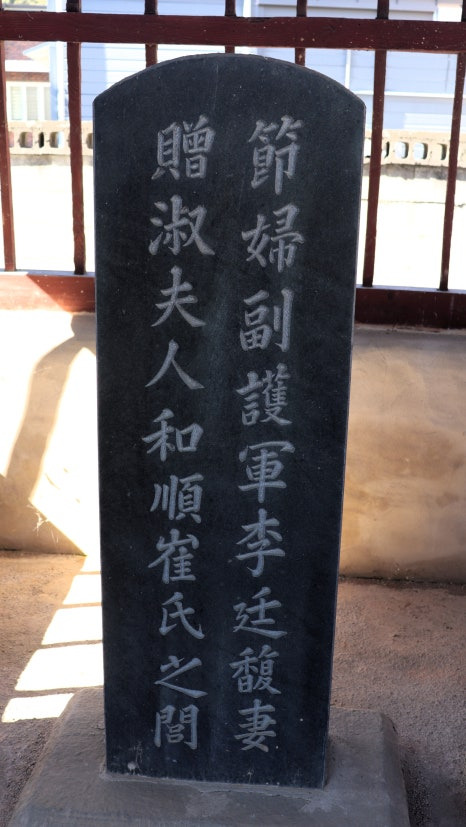 節婦副護軍李廷馥妻
贈淑夫人和順崔氏之閭